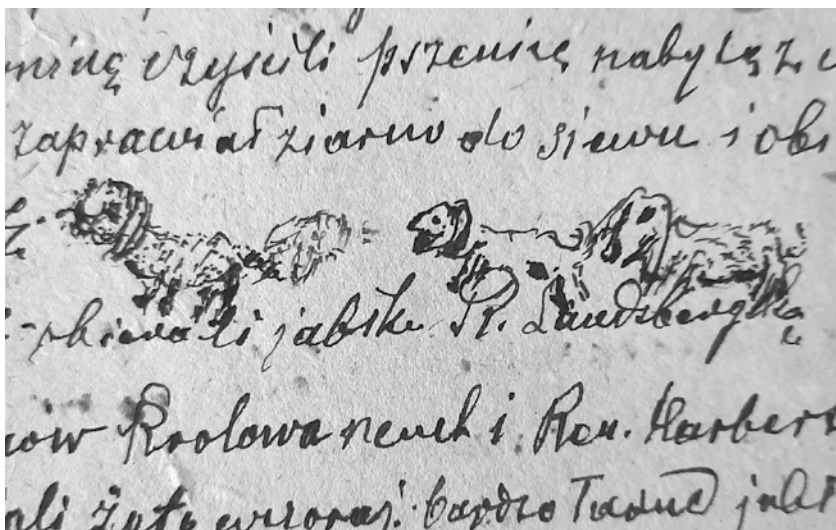 czyścili pszenicę nabytą z
zaprawiał ziarno do siewu i obi
zbierali jabłka R. Landsbergską
Krolowa renet i Ren. Harber
żyto wczoraj. bardzo ładne jabł